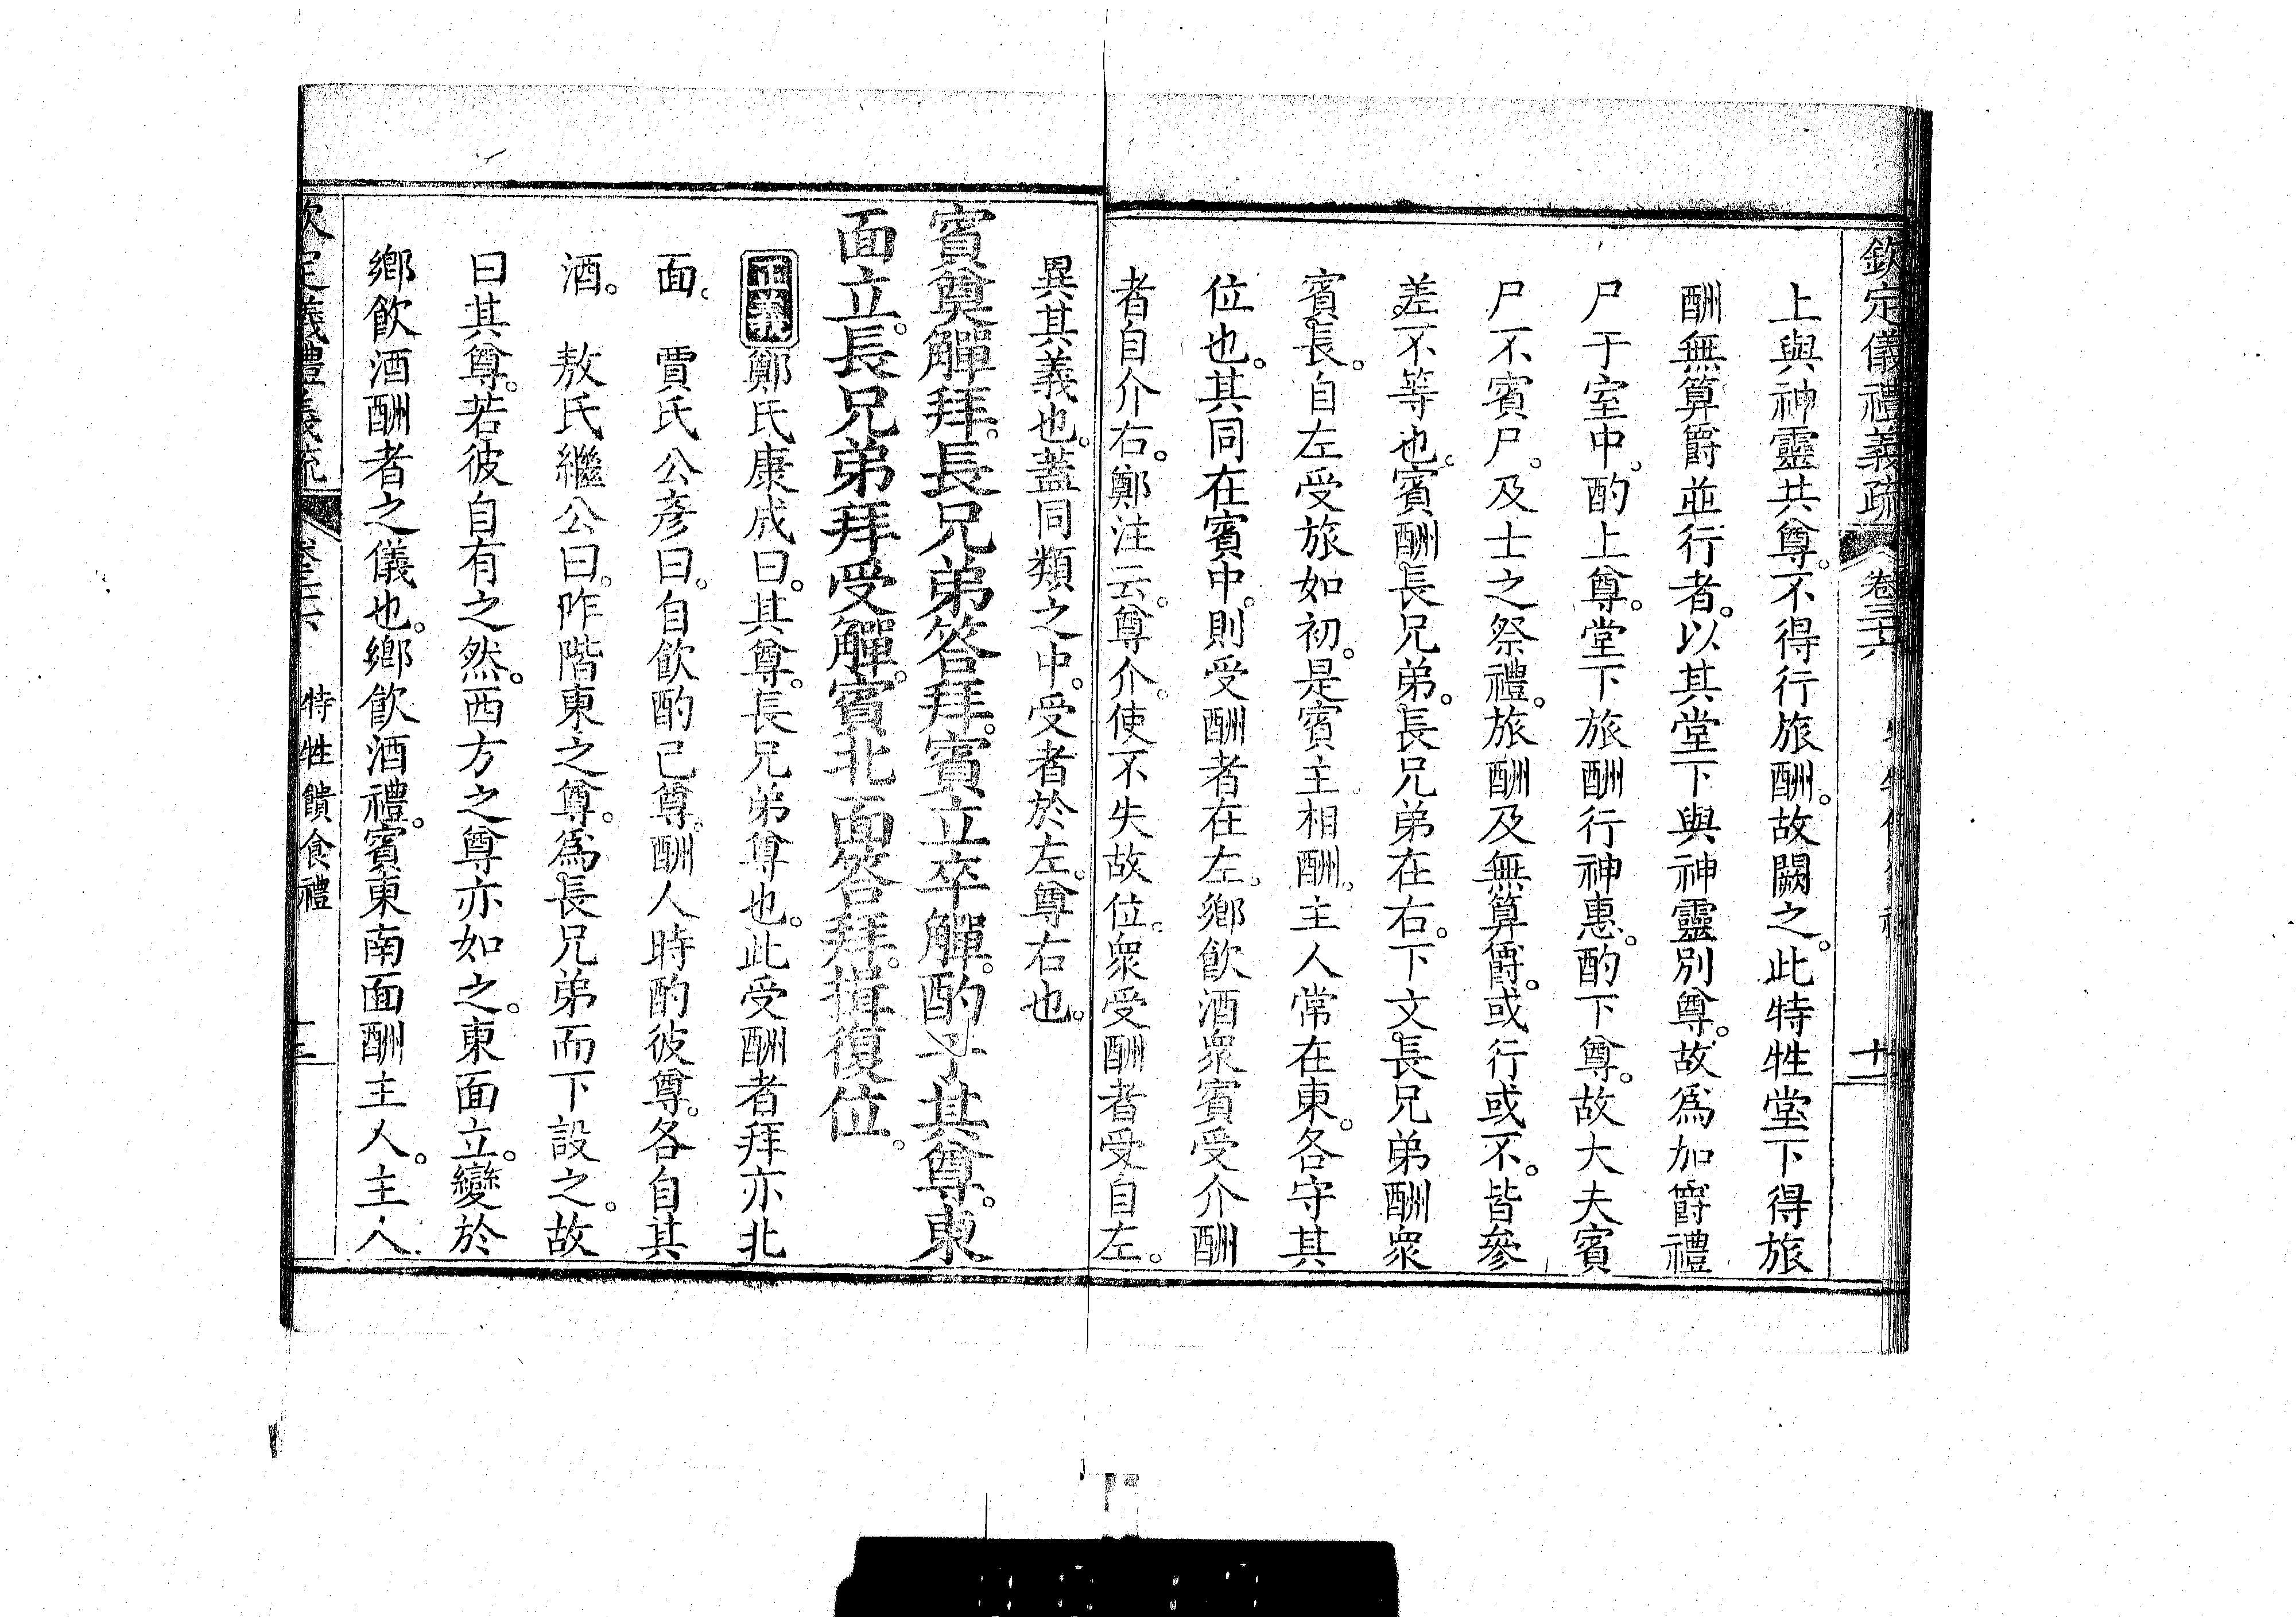 欽定儀禮義疏 卷三十六 十一
上與神靈共尊。不得行旅酬。故闕之。此特牲堂下得旅
酬無算爵並行者。以其堂下與神靈別尊。故爲加爵禮
尸于室中。酌上尊。堂下旅酬行神惠。酌下尊。故大夫賓
尸不賓尸。及士之祭禮。旅酬及無算爵。或行或不。皆參
差不等也。賓酬長兄弟。長兄弟在右。下文長兄弟酬衆
賓長。自左受旅如初。是賓主相酬。主人常在東。各守其
位也。其同在賓中。則受酬者在左。鄉飲酒衆賓受介酬
者自介右。鄭注云。尊介。使不失故位。衆受酬者受自左。
異其義也。蓋同類之中。受者於左。尊右也。
賓奠觶拜。長兄弟答拜。賓立卒觶。酌于其尊。東
面立。長兄弟拜受觶。賓北面答拜。揖復位。
正義鄭氏康成曰。其尊。長兄弟尊也。此受酬者拜亦北
面。 賈氏公彥曰。自飲酌己尊。酬人時酌彼尊。各自其
酒。 敖氏繼公曰。阼階東之尊。爲長兄弟而下設之。故
曰其尊。若彼自有之然。西方之尊亦如之。東面立。變於
鄉飲酒酬者之儀也。鄉飲酒禮。賓東南面酬主人。主人
欽定儀禮義疏 卷三十六 特牲饋食禮